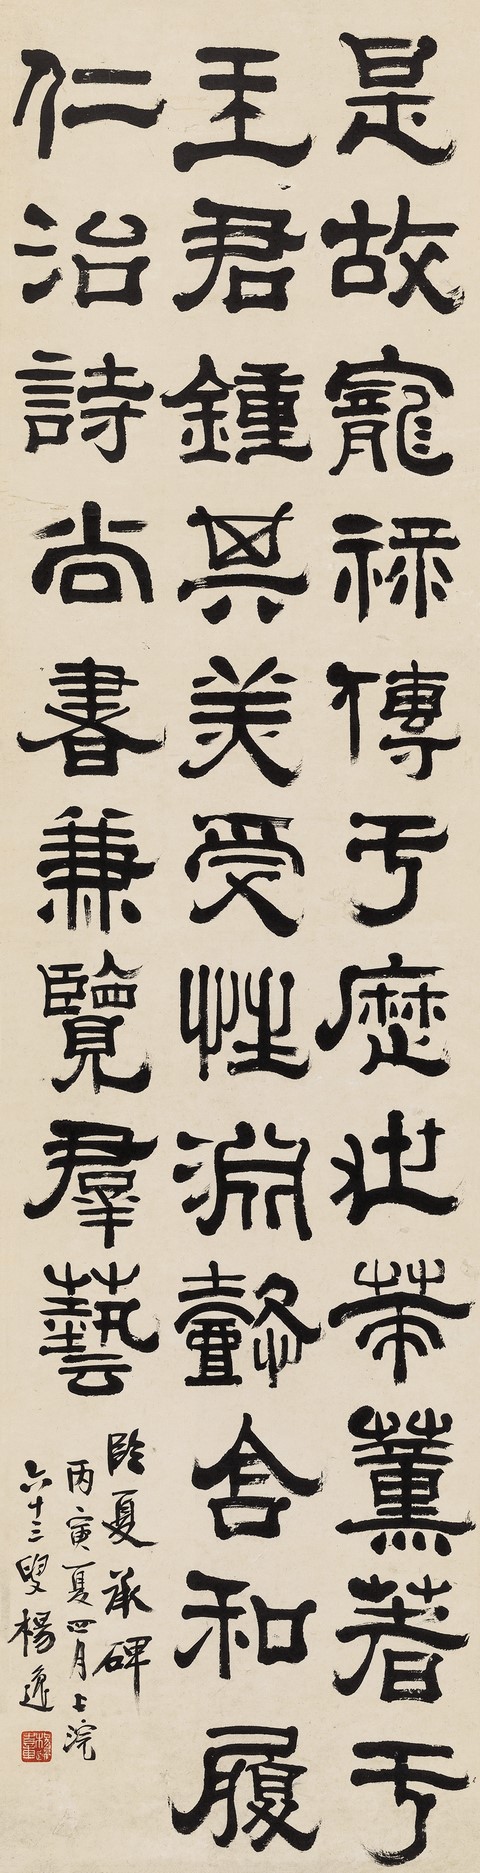 是故寵祿傳于歷世策薰著于
王君鍾其美受性淵懿含和履
仁治詩尚書兼覽羣藝
臨夏承碑
丙寅夏四月上浣
六十三叟楊逸